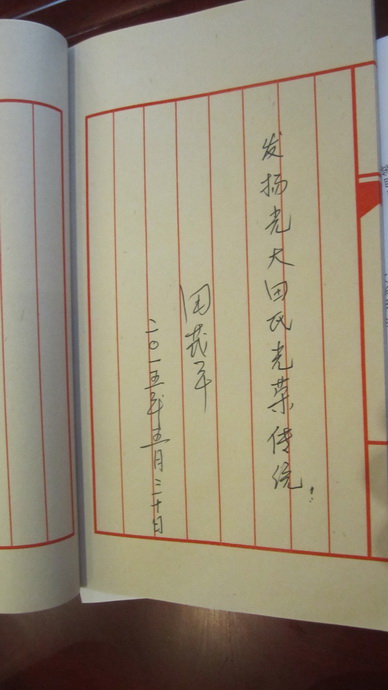 发扬光大田氏光荣传统！
田茂
二〇一五年五月二十日